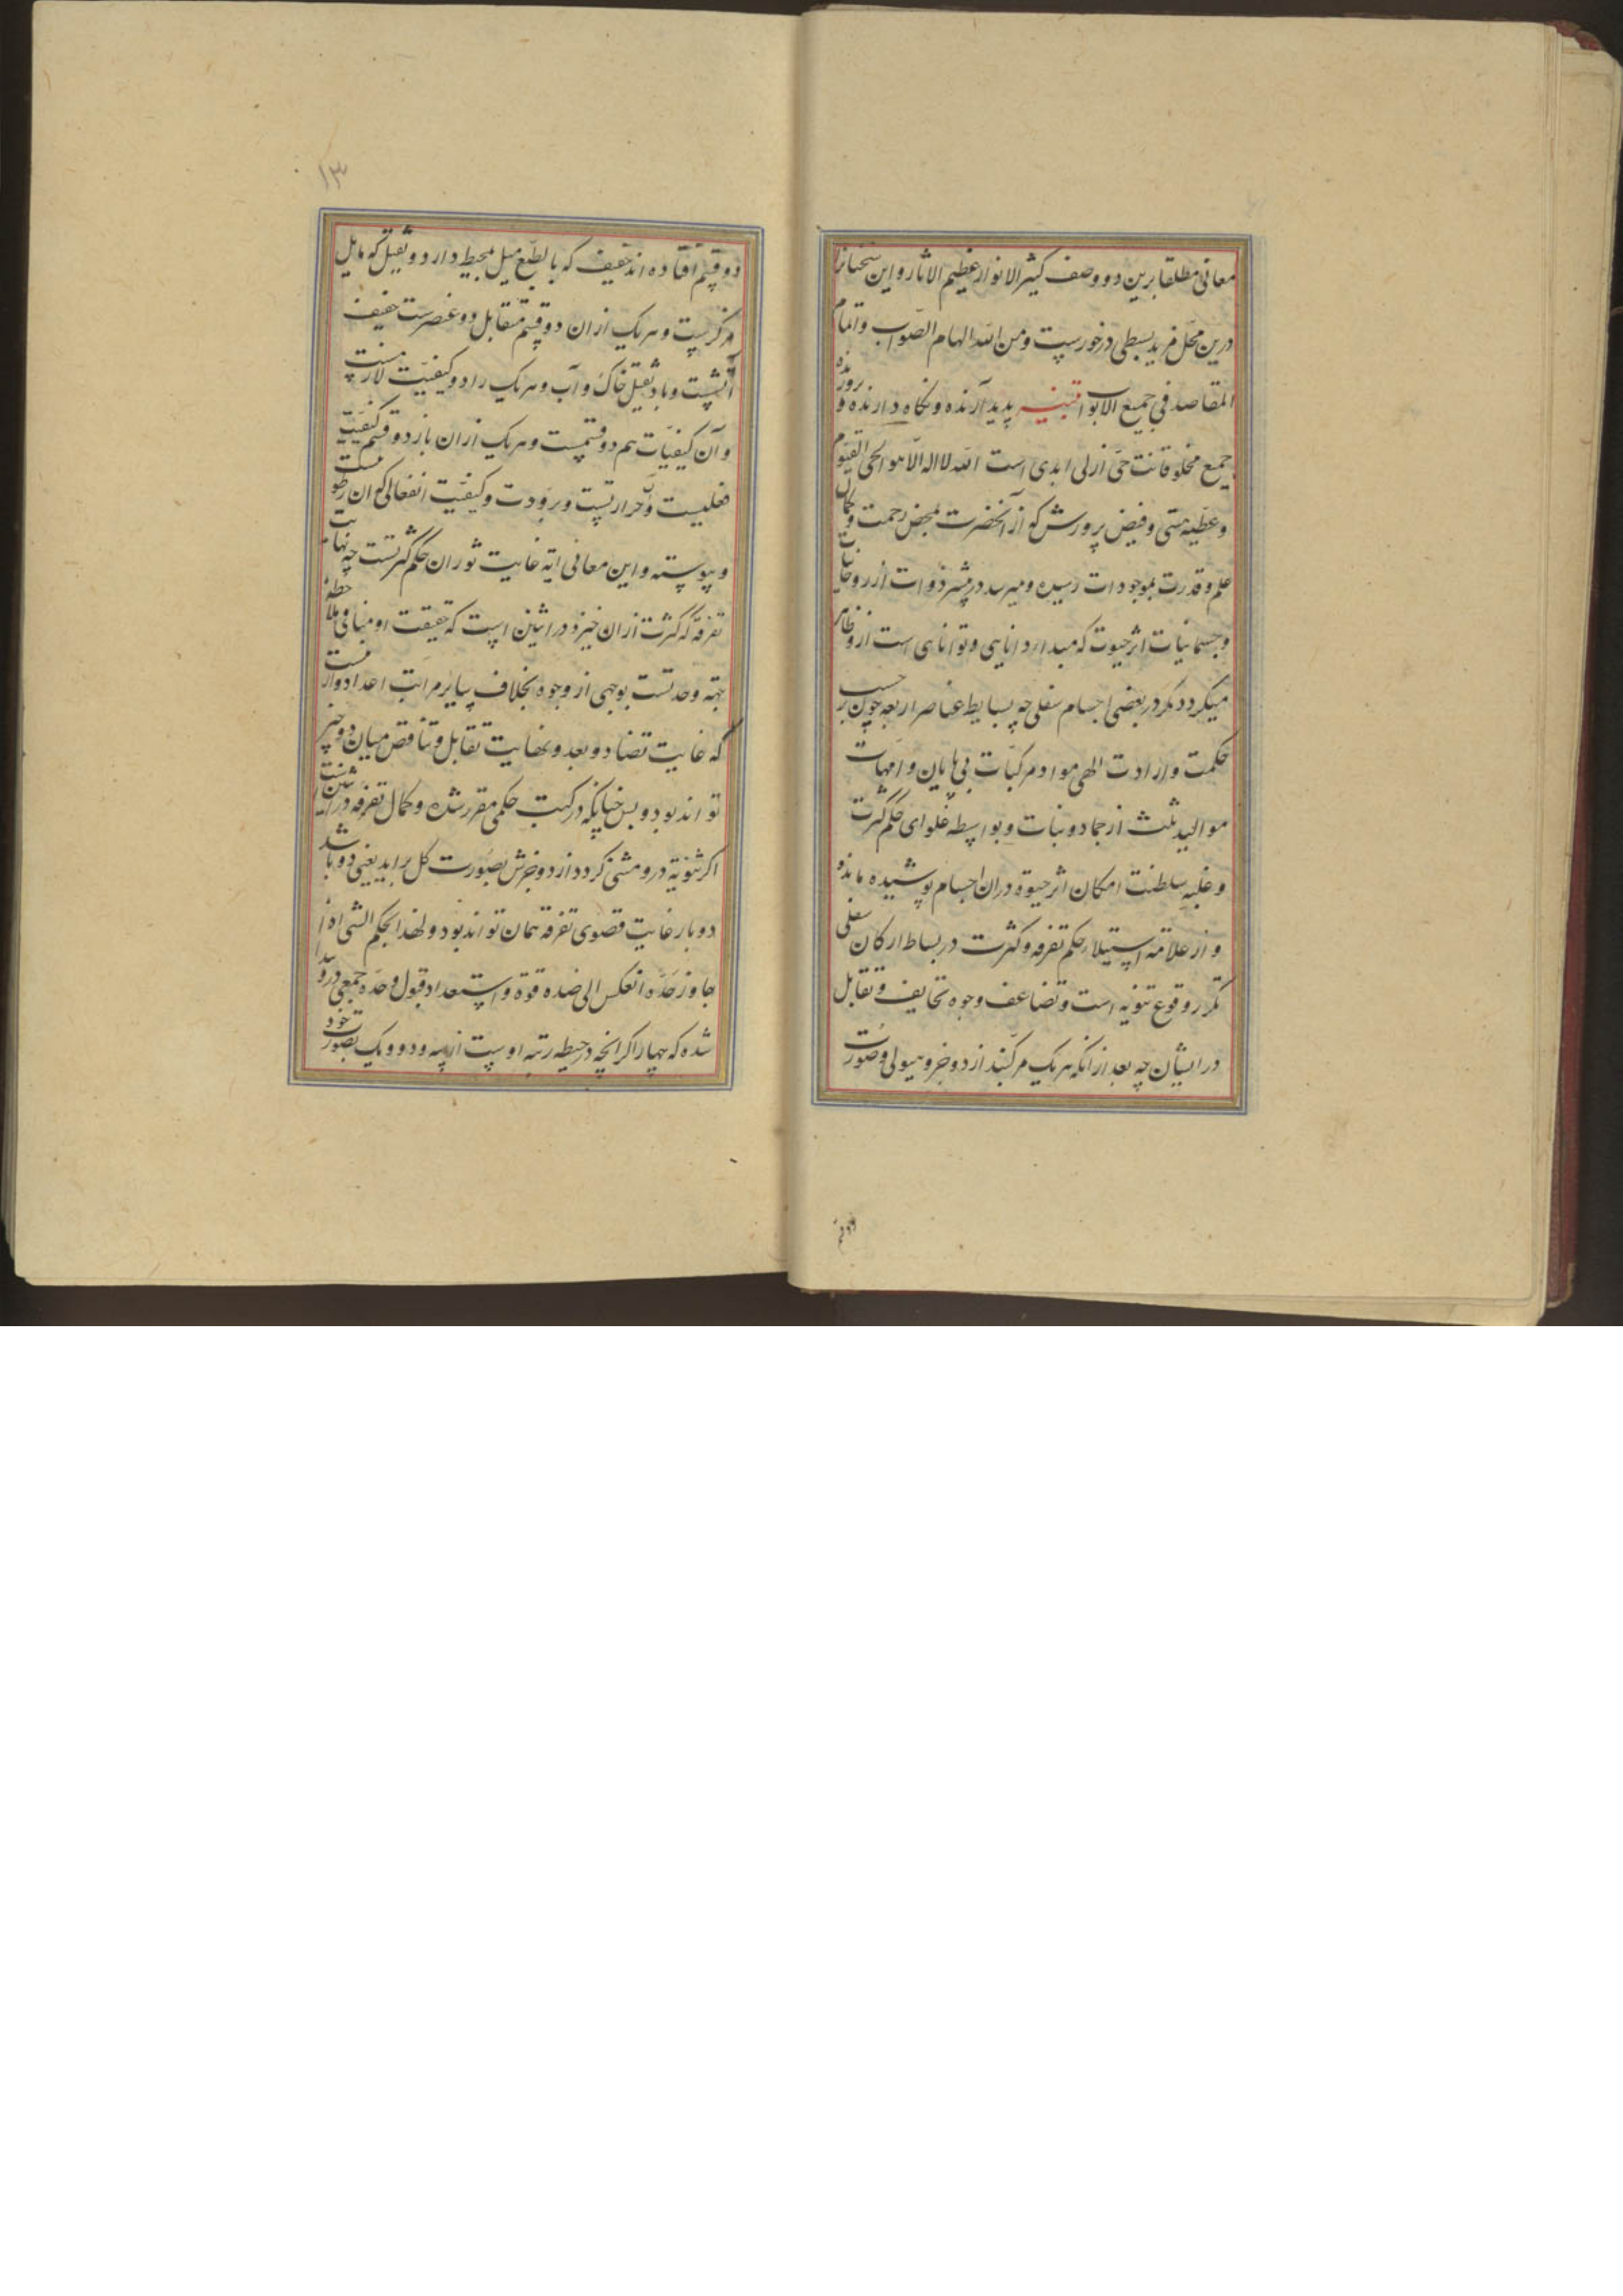 معانی مطلقا برین دو وصف کثیر الانوار عظیم الآثار و این سخنانرا
درین محل مزید بسطی در خورست ومن الله الهام الصواب و اتمام
المقاصد فی جمیع الابواب تنبیه پدید آرنده و نگاه دارنده و روزی ده
جمیع مخلوقات حی ازلی ابدی است الله لا اله الا هو الحی القیوم
و عطیه هستی و فیض پرورش کو از آنحضرت بمحض رحمت و کمال
علم و قدرت بموجودات رسیده و میرسد در بیشتر ذوات از روحانیات
و جسمانیات اثر حیوت که مبداء دانایی و توانایی است ازو ظاهر
میکردد مکر در بعضی اجسام سفلی چه بسایط عناصر اربعه چون بر حسب
حکمت و ارادت الهی مواد مرکبات بی پایان و امهات
موالید ثلث از جماد و نبات و بواسطه غلوای حکم کثرت
و غلبه سلطنت امکان اثر حیوة در ان اجسام پوشیده مانده
و از علامه استیلاء حکم تفرقه و کثرت در بساط ارکان سفلی
تکرر وقوع تثنویه است و تضاعف وجوه تخالیف و تقابل
در ایشان چه بعد از انکه هر یک مرکبند از دو جزو هیولی و صورت
دو قسم
۱۳
دو قسم افتاده اند خفیف که بالطبع میل بمحیط دارد و ثقیل که مایل
مرکزست و هر یک از ان دو قسم متقابل دو عنصرست خفیف
آتشست و باد ثقیل خاک و آب و هر یک را دو کیفیت لازمست
و آن کیفیات هم دو قسمست و هر یک از ان باز دو قسم کیفیت
فعلیست و آن حرارتست و برودت و کیفیت انفعالی که ان رطوبت
و یبوسته و این معانی آیه غایت ثوران حکم کثرتست چه نهایت
تفرقه که کثرت از ان خیزد در اثنین است که حقیقت او مبنا فی ملاحظه
جهة وحدتست بوجهی از وجوه بخلاف سایر مراتب اعداد و ازینست
که غایت تضاد و بعد و نهایت تقابل و تناقص میان دو چیز
تواند بود و بس چنانکه در کتب حکمی مقرر شده و کمال تفرقه در اثنین آنست
اکر ثنویة درو مثنی کردد از دو جزش بصورت کل براید یعنی دو باشد
دو بار غایت قصوی تفرقه همان تواند بود و لهذا بحکم الشی اذا
جاوز حده انعکس الی ضده قوة و استعداد قبول وحده جمعی درو پیدا
شده که چهار اکر انچه در حیطه رتبه اوست از سه و دو و یک بصورت خود